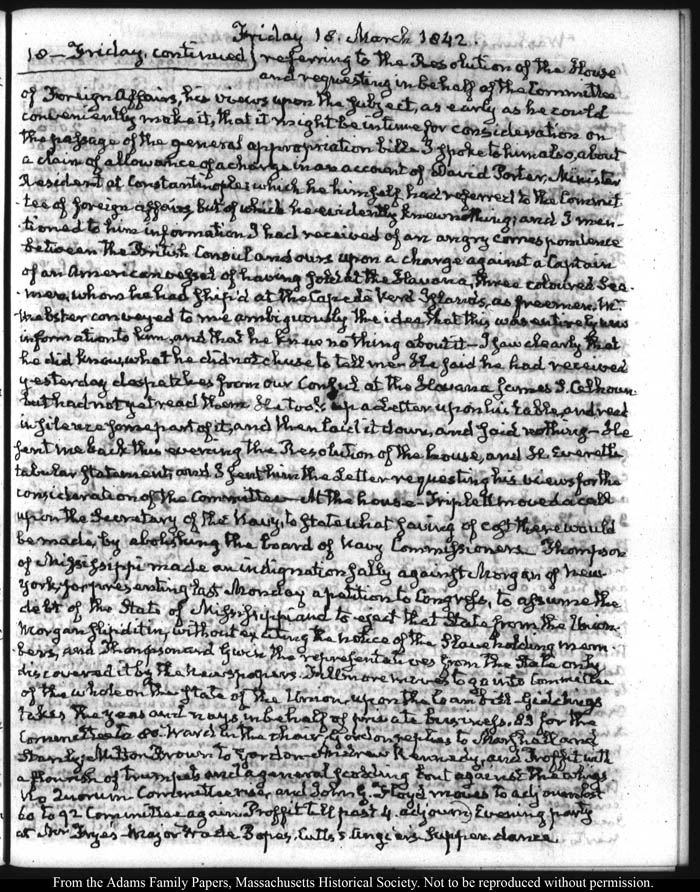 Friday 18. March 1842.
18 – Friday, continued} referring to the Resolution of the House
and requesting in behalf of the Committee
of Foreign Affairs, his views upon the subject, as early as he could
conveniently make it, that it might be in time for consideration on
the passage of the general appropriation bill. I spoke to him also, about
a claim of allowance of a charge in an account of David Porter, Minister
Resident at Constantinople; which he himself had referred to the Commit-
tee of foreign affairs, but of which he evidently knew nothing; and I men-
tioned to him information I had received of an angry correspondence
between the British Consul and ours upon a charge against a Captain
of an American vessel of having sold at the Havana, three coloured Sea-
men, whom he had ship'd at the Cape de Verd Islands, as freemen. Mr
Webster conveyed to me ambiguously the idea that this was entirely new
information to him, and that he knew nothing about it – I saw clearly that
he did know, what he did not chuse to tell me. He said he had received
yesterday despatches from our Consul at the Havana James S. Calhoun
but had not yet read them. He took up a Letter upon his table, and read
in silence some part of it, and then laid it down, and said nothing – He
sent me back this evening the Resolution of the house, and E. Everett's
tabular Statement, and I sent him the Letter requesting his views for the
consideration of the Committee. At the house – Triplett moved a call
upon the Secretary of the Navy, to state what saving of cost there would
be made, by abolishing the board of Navy Commissioners. Thompson
of Mississippi made an indignation sally against Morgan of New-
York, for presenting last Monday a petition to Congress, to assume the
debt of the State of Mississippi and to eject that State from the Union.
Morgan slip'd it in, without exciting the notice of the Slave holding mem-
bers, and Thompson and Gwin the representatives from the State only
discovered it by the newspapers. Fillmore moves to go into Committee
of the whole on the state of the Union, upon the Loan bill – Giddings
takes the yeas and nays in behalf of private business. 83 for the
Committee to 80. Ward in the chair. Gordon replies to Marshall and
Stanly – Milton Brown to Gordon – Andrew Kennedy, and Proffit with
a flourish of trumpets and a general scolding bout against the Whigs
No Quorum Committee rise, and John G. Floyd moves to adjourn lost
60 to 92 Committee again. Proffit till past 4. adjourn. Evening party
at Mr Frye's – Major Wade Bopes, Cutts's Supper dance.
From the Adams Family Papers, Massachusetts Historical Society. Not to be reproduced without permission.